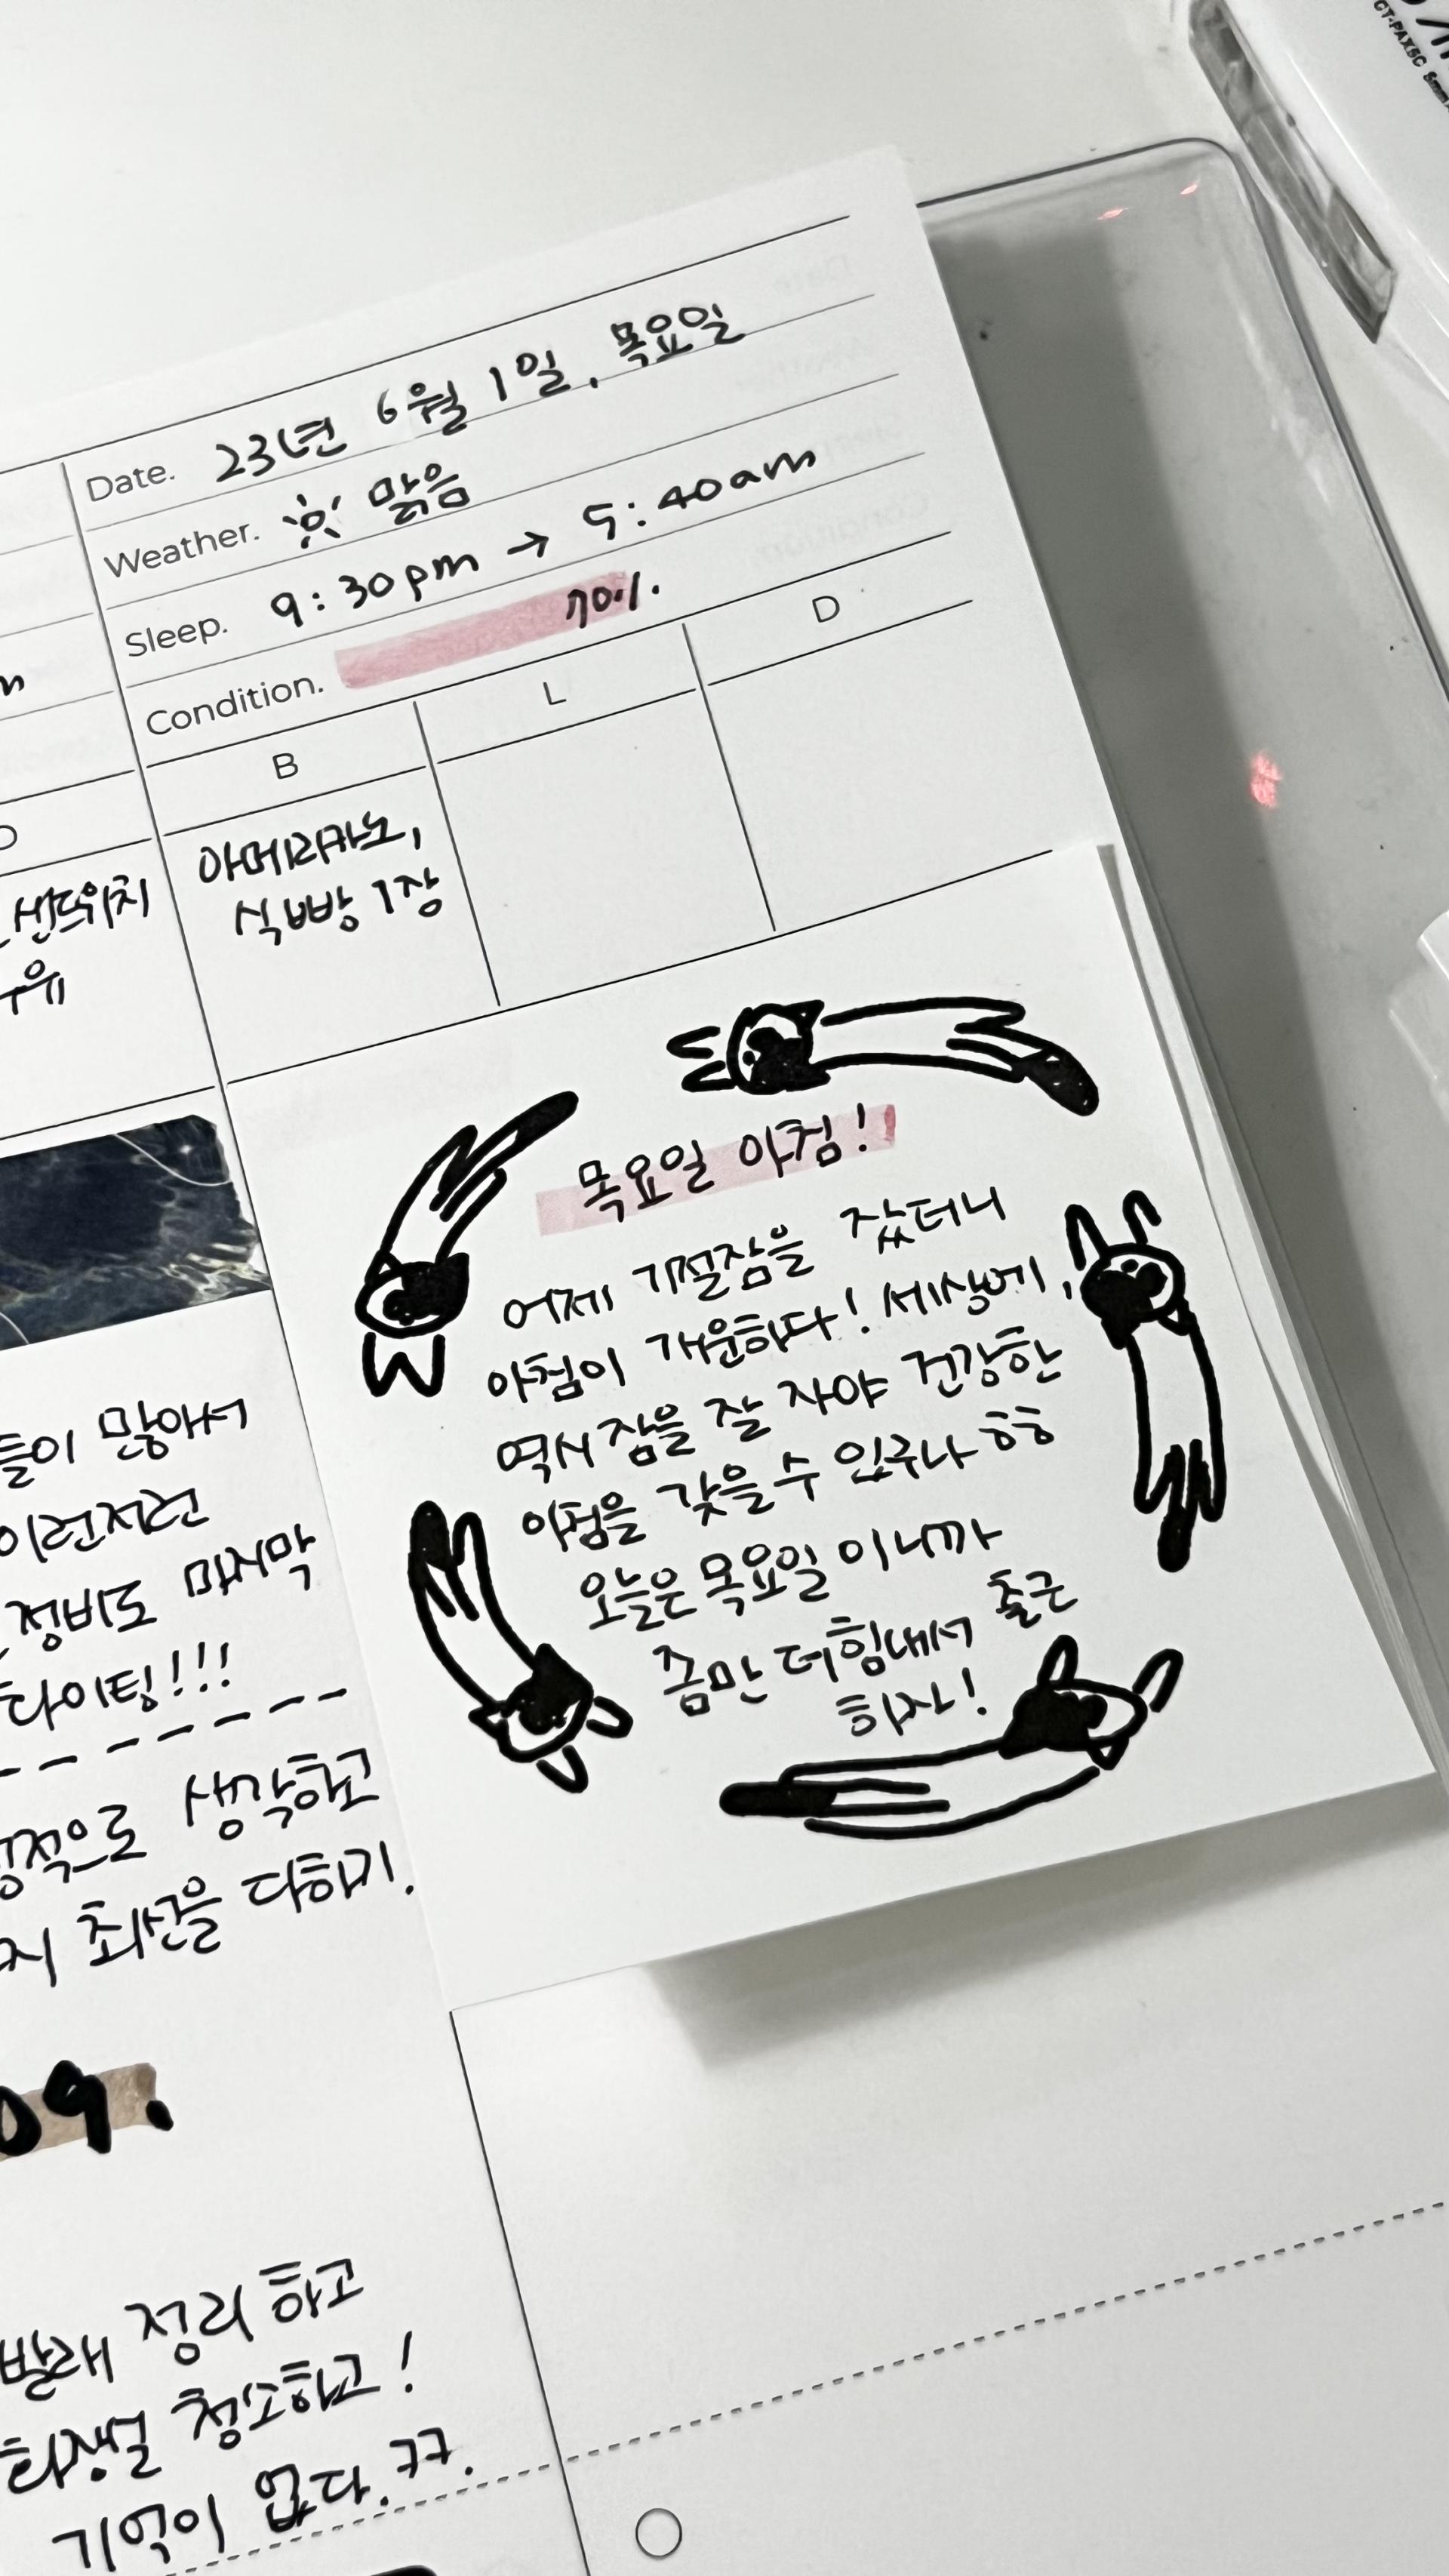 CT-PAX5C
Date. 23년 6월 1일, 목요일
Weather. 맑음
Sleep. 9:30pm → 5:40am
Condition. 70%
B L D
아메리카노,
식빵 1장
목요일 아침!
어제 기절잠을 잤더니
아침이 개운하다! 세상에,
역시 잠을 잘 자야 건강한
아침을 갖을 수 있구나 ㅎㅎ
오늘은 목요일이니까
좀만 더 힘내서 출근
하자!
샌드위치
우유
들이 많아서
이런저런
정비도 마지막
화이팅!!!
정적으로 생각하고
지 최선을 다하기.
09.
빨래 정리 하고
화장실 청소하고!
기억이 없다.ㅋㅋ.